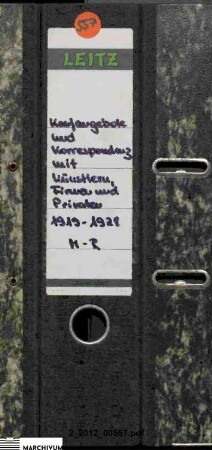 557
LEITZ
Kaufangebote
und
Korrespondenz
mit
Künstlern,
Firmen und
Privaten
1919-1928
M-R
2_2012_00557.pdf
MARCHIVUM